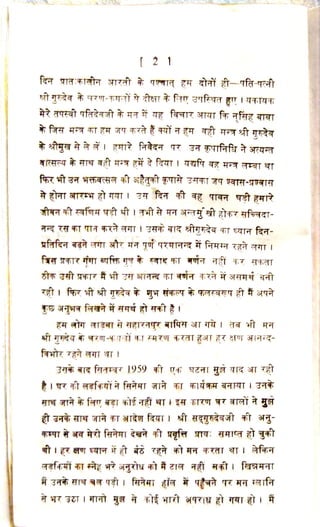 [ 2 ]
दिन प्रातःकालीन आरती के पश्चात् हम दोनों ही—पति-पत्नी
श्री गुरुदेव के चरण-कमलों में दीक्षा के लिए उपस्थित हुए । यकायक
मेरे तपस्वी पतिदेवजी के मन में यह विचार आया कि नृसिंह बाबा
के जिस मन्त्र का हम जप करते हैं क्यों न हम वही मन्त्र श्री गुरुदेव
के श्रीमुख से ले लें । हमारे निवेदन पर उन कृपानिधि ने अत्यन्त
वात्सल्य के साथ वही मन्त्र हमें दे दिया । यद्यपि वह मन्त्र लम्बा था
फिर भी उन भक्तवत्सल की अहैतुकी कृपासे उसका जप श्वास-प्रश्वास
से होना आरम्भ हो गया । उस दिन की वह पावन घड़ी हमारे
जीवन की स्वर्णिम घड़ी थी । तभी से मन अन्तर्मुखी होकर सच्चिदा-
नन्द रस का पान करने लगा । उसके बाद श्रीगुरुदेव का ध्यान दिन-
प्रतिदिन बढ़ने लगा और मन पूर्ण परमानन्द में निमग्न रहने लगा ।
जिस प्रकार गूंगा व्यक्ति गुण के स्वाद का वर्णन नहीं कर सकता
ठीक उसी प्रकार मैं भी उस आनन्द का वर्णन करने में असमर्थ बनी
रही । फिर भी श्री गुरुदेव के शुभ संकल्प के फलस्वरूप ही मैं अपने
कुछ अनुभव लिखने में समर्थ हो सकी हूँ ।
हम लोग लाडवा से सहारनपुर वापिस आ गये । तब भी मन
श्री गुरुदेव के चरण-कमलों का स्मरण करता हुआ हर क्षण आनन्द-
विभोर रहने लगा था ।
उसके बाद सितम्बर 1959 की एक घटना मुझे याद आ रही
है । घर की लड़कियों ने सिनेमा जाने का कार्यक्रम बनाया । उनके
साथ जाने के लिए बड़ा कोई नहीं था । इस कारण घर वालों ने मुझे
ही उनके साथ जाने का आदेश दिया । श्री सद्गुरुदेवजी की अनु-
कम्पा से अब मेरी सिनेमा देखने की प्रवृत्ति प्रायः समाप्त हो चुकी
थी । हर क्षण ध्यान में ही बैठे रहने को मन करता था । लेकिन
लड़कियों का स्नेह भरे अनुरोध को मैं टाल नहीं सकी । खिन्नमना
मैं उनके साथ चल पड़ी । सिनेमा हॉल में पहुँचने पर मन ग्लानि
से भर उठा । मानो मुझ से कोई भारी अपराध हो गया हो । मैं